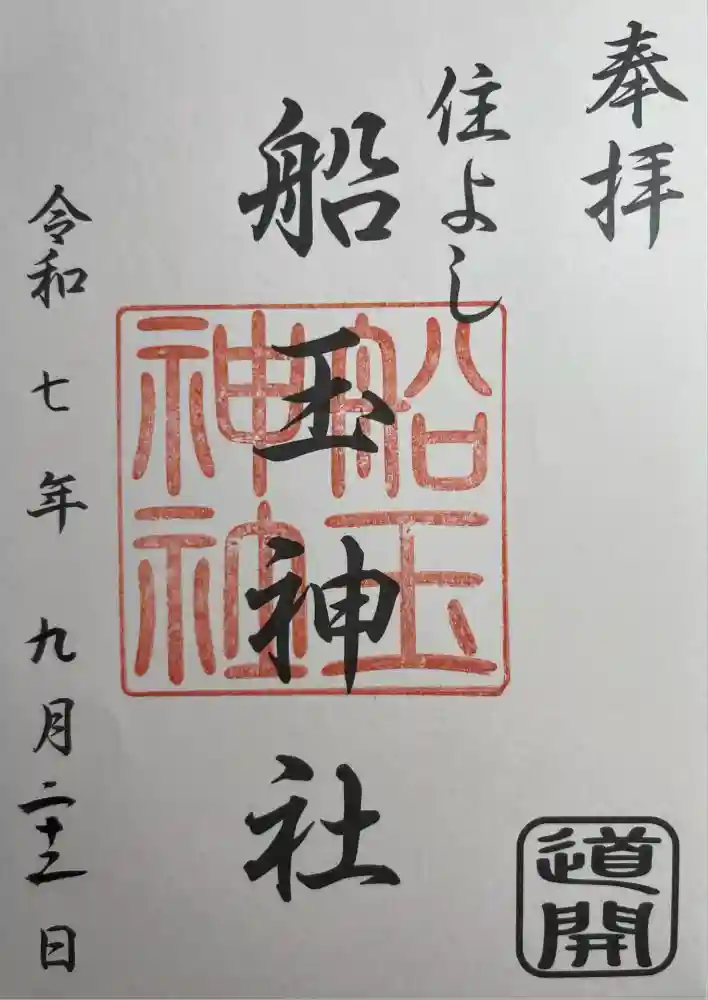 奉拝
住よし
船玉神社
船玉神社
道開
令和七年九月二十二日